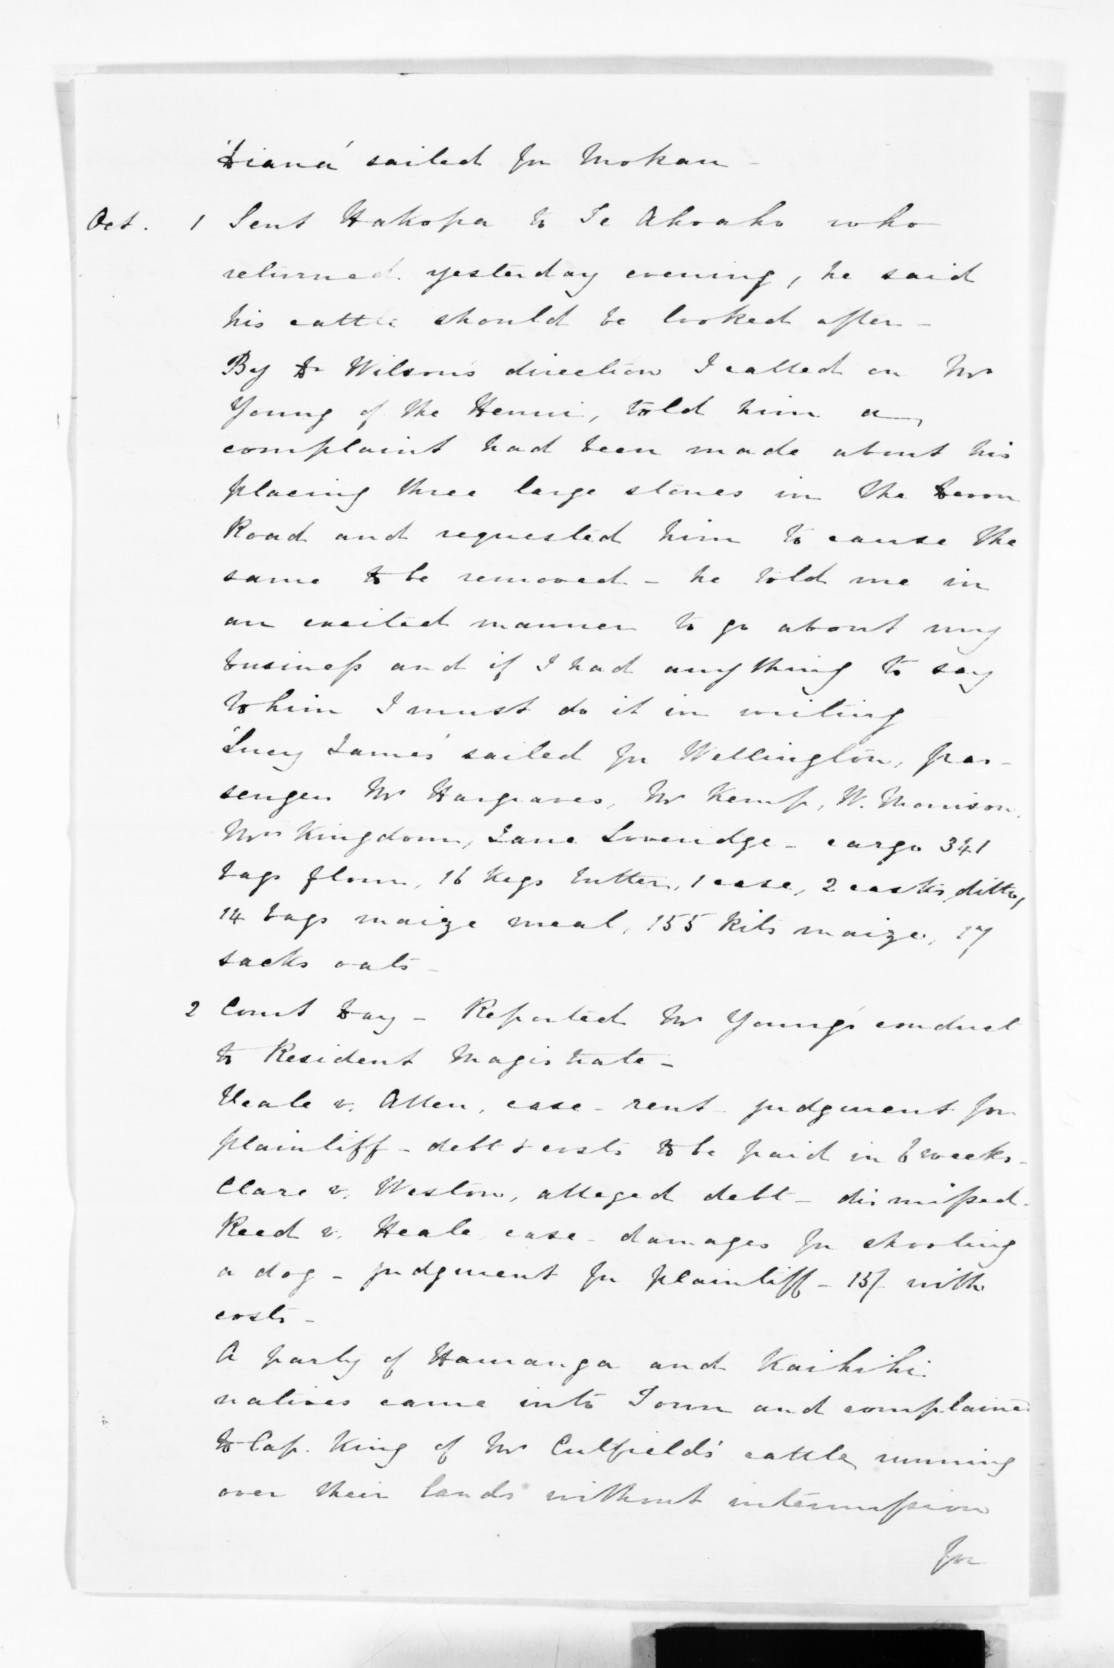 'Diana' sailed for Mokau -
Oct. 1 Sent Hakopa to Te Ahoaho who
returned yesterday evening, he said
his cattle should be looked after -
By Dr Wilson's direction I called on Mr
Young of the Henui, told him a
complaint had been made about his
placing three large stones in the Devon
Road and requested him to cause the
same to be removed - he told me in
an excited manner to go about my
business and if I had anything to say
to him I must do it in writing
'Lucy James' sailed for Wellington, pas-
sengers Mr Hargraves, Mr Kemp, W. Morrison,
Mrs Kingdom, Jane Loveridge - cargo 341
bags flour, 16 kegs butter, 1 case, 2 casks ditto,
14 bags maize meal, 155 kits maize, 17
sacks oats -
2 Court Day - Reported Mr Young's conduct
to Resident Magistrate -
Veale v. Allen, case - rent - judgment for
plaintiff - debt & costs to be paid in 6 weeks -
Clare v. Weston, alleged debt - dismissed.
Reed v. Heale case - damages for shooting
a dog - judgment for plaintiff - 15/ with
costs -
A party of Hauranga and Kaihihi
natives came into Town and complained
to Cap. King of Mr Cutfield's cattle running
over their lands without intermission
for